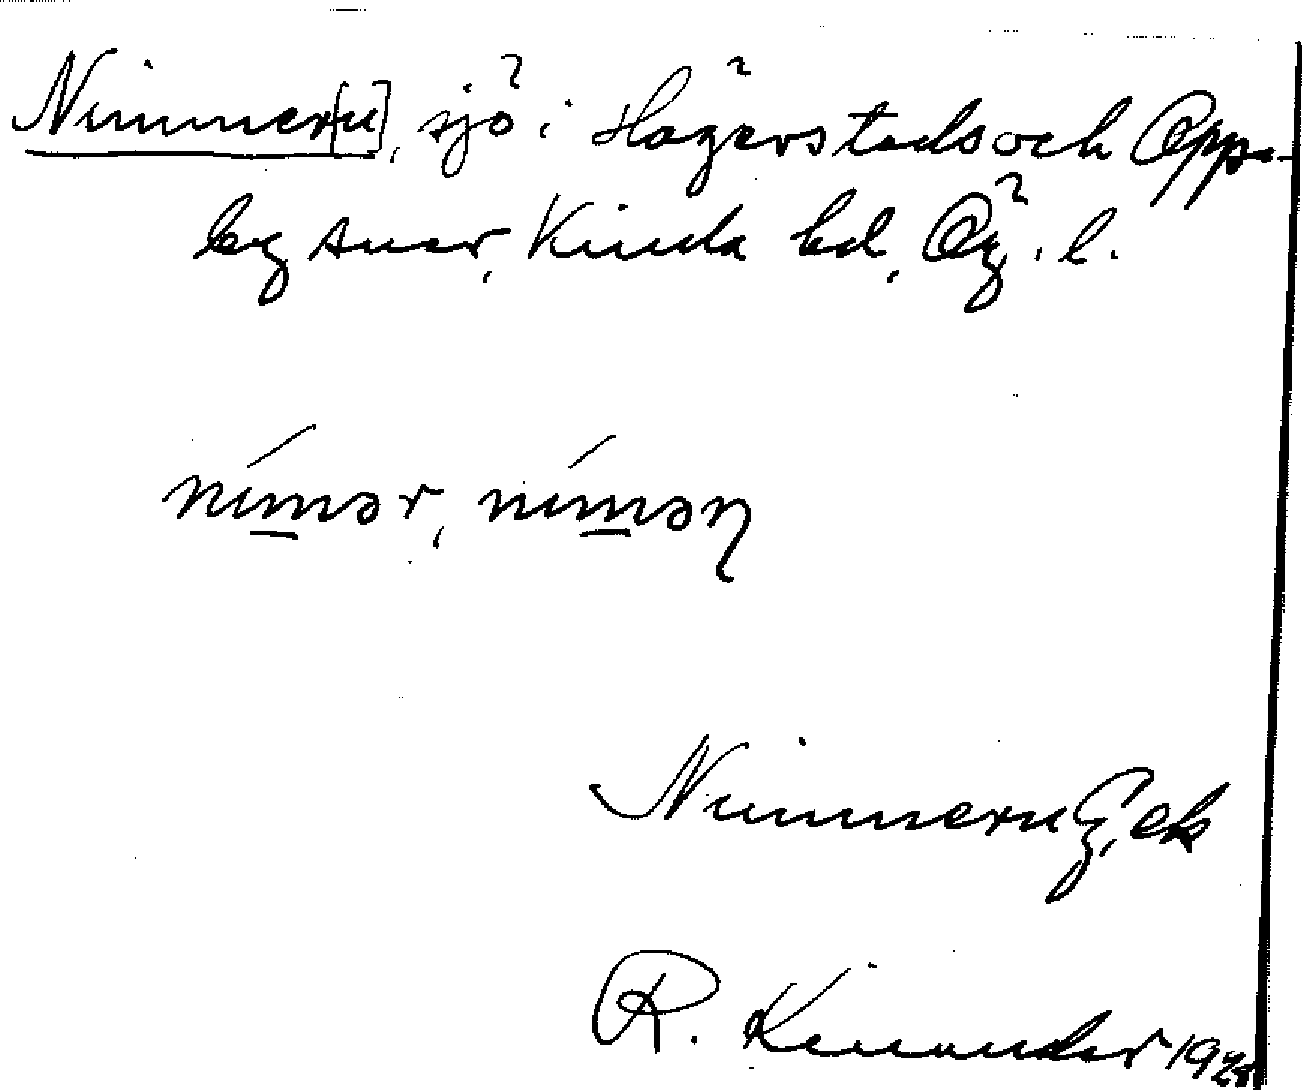 Nimmer[n], sjö i Hägerstads och Oppe-
by snar, Kinda hd, Ög. l.
nímər, nímən
Nimmern G, ek
R. Kinander 192